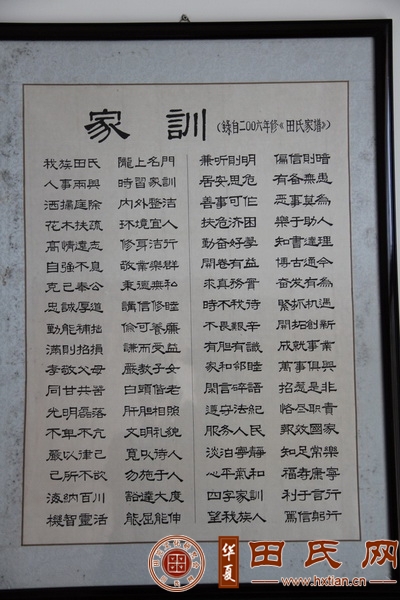 家訓
(錄自二00六年修《田氏家譜》)
我族田氏 隴上名門
人事兩興 時習家訓
洒掃庭除 内外整洁
花木扶疏 环境宜人
高情遠志 修身洁行
自強不息 敬業樂群
克己奉公 秉德無私
忠誠厚道 講信修睦
勤能補拙 儉可養廉
滿則招損 謙而受益
孝敬父母 嚴教子女
同甘共苦 白頭偕老
光明磊落 肝胆相照
不卑不亢 文明礼貌
嚴以律己 寬以待人
己所不欲 勿施于人
海納百川 豁達大度
機智靈活 能屈能伸
兼听則明 偏信則暗
居安思危 有备無患
善事可作 恶事莫為
扶危济困 樂于助人
勤奋好學 知書達理
開卷有益 博古通今
求真務實 奋發有為
時不我待 緊抓机遇
不畏艱辛 開拓創新
有胆有識 成就事業
家和邻睦 萬事俱興
閑言碎語 招惹是非
遵守法紀 恪尽职責
服务人民 報效國家
淡泊寧靜 知足常樂
心平氣和 福寿康寧
四字家訓 利于言行
望我族人 篤信躬行
华夏 田氏网
www.hxtian.cn